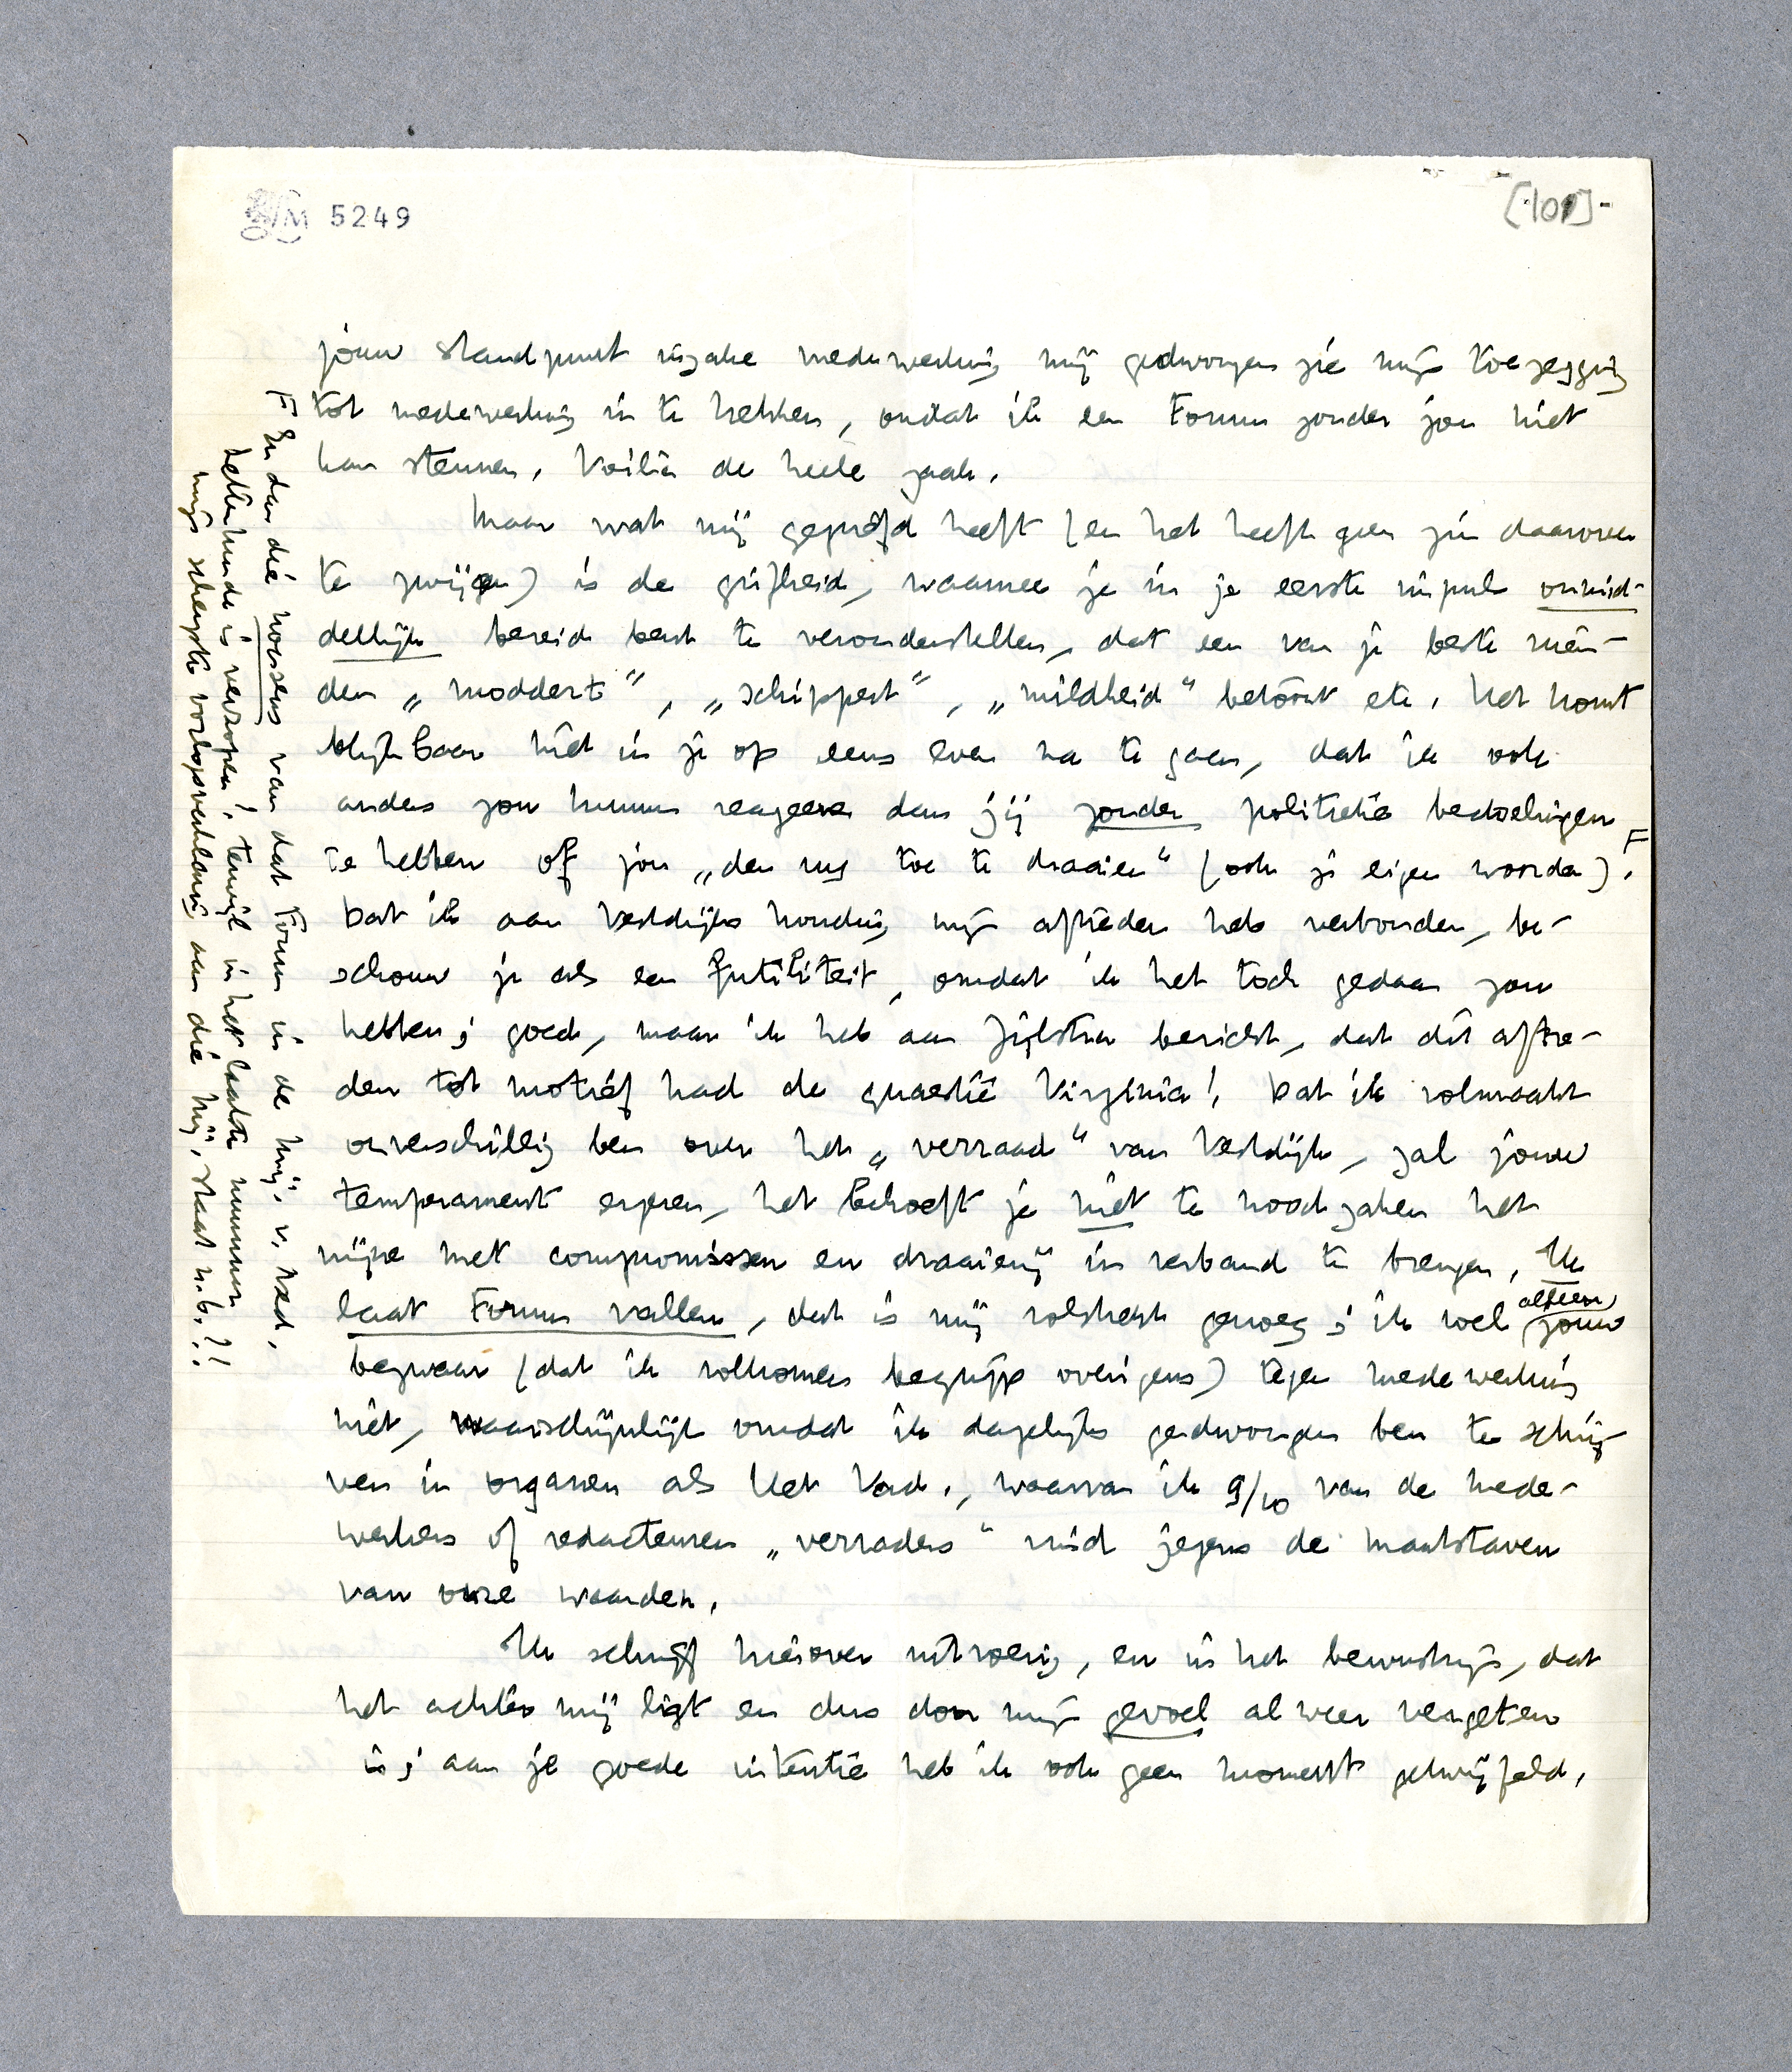 LM 5249
[101]
jouw standpunt inzake medewerking mij gedwongen zie mijn toezegging
tot medewerking in te trekken, omdat ik een Forum zonder jou niet
kan steunen. Voilà de heele zaak.
Maar wat mij gegriefd heeft (en het heeft geen zin daarover
te zwijgen) is de grifheid, waarmee je in je eerste impuls onmid-
dellijk bereid bent te veronderstellen, dat een van je beste vrien-
den „moddert", „schippert", „mildheid" betoont etc. Het komt
blijkbaar niet in je op eens even na te gaan, dat ik ook
anders zou kunnen reageeren dan jij zonder politieke bedoelingen
te hebben of jou „den rug toe te draaien" (ook je eigen woorden). F
Dat ik aan Vestdijks houding mijn aftreden heb verbonden, be-
schouw je als een futiliteit, omdat ik het toch gedaan zou
hebben; goed, maar ik heb aan Zijlstra bericht, dat dit aftre-
den tot motief had de quaestie Virginia! Dat ik volmaakt
onverschillig ben over het „verraad" van Vestdijk, zal jouw
temperament ergeren, het behoeft je niet te noodzaken het
mijne met compromissen en draaierij in verband te brengen. Ik
laat Forum vallen, dat is mij volstrekt genoeg; ik voel alleen jouw
bezwaar (dat ik volkomen begrijp overigens) tegen medewerking
niet, waarschijnlijk omdat ik dagelijks gedwongen ben te schrij-
ven in organen als Het Vad., waarvan ik 9/10 van de mede-
werkers of redacteuren „verraders" vind jegens de maatstaven
van onze waarden.
Ik schrijf hierover uitvoerig, en in het bewustzijn, dat
het achter mij ligt en dus door mijn gevoel al weer vergeten
is; aan je goede intentie heb ik ook geen moment getwijfeld.
F En dan die nonsens van dat Forum in de Mij. v. Lett.
letterkunde is verzopen!, terwijl in het laatste nummer
mijn scherpste oorlogsverklaring aan die Mij. staat n.b.!!